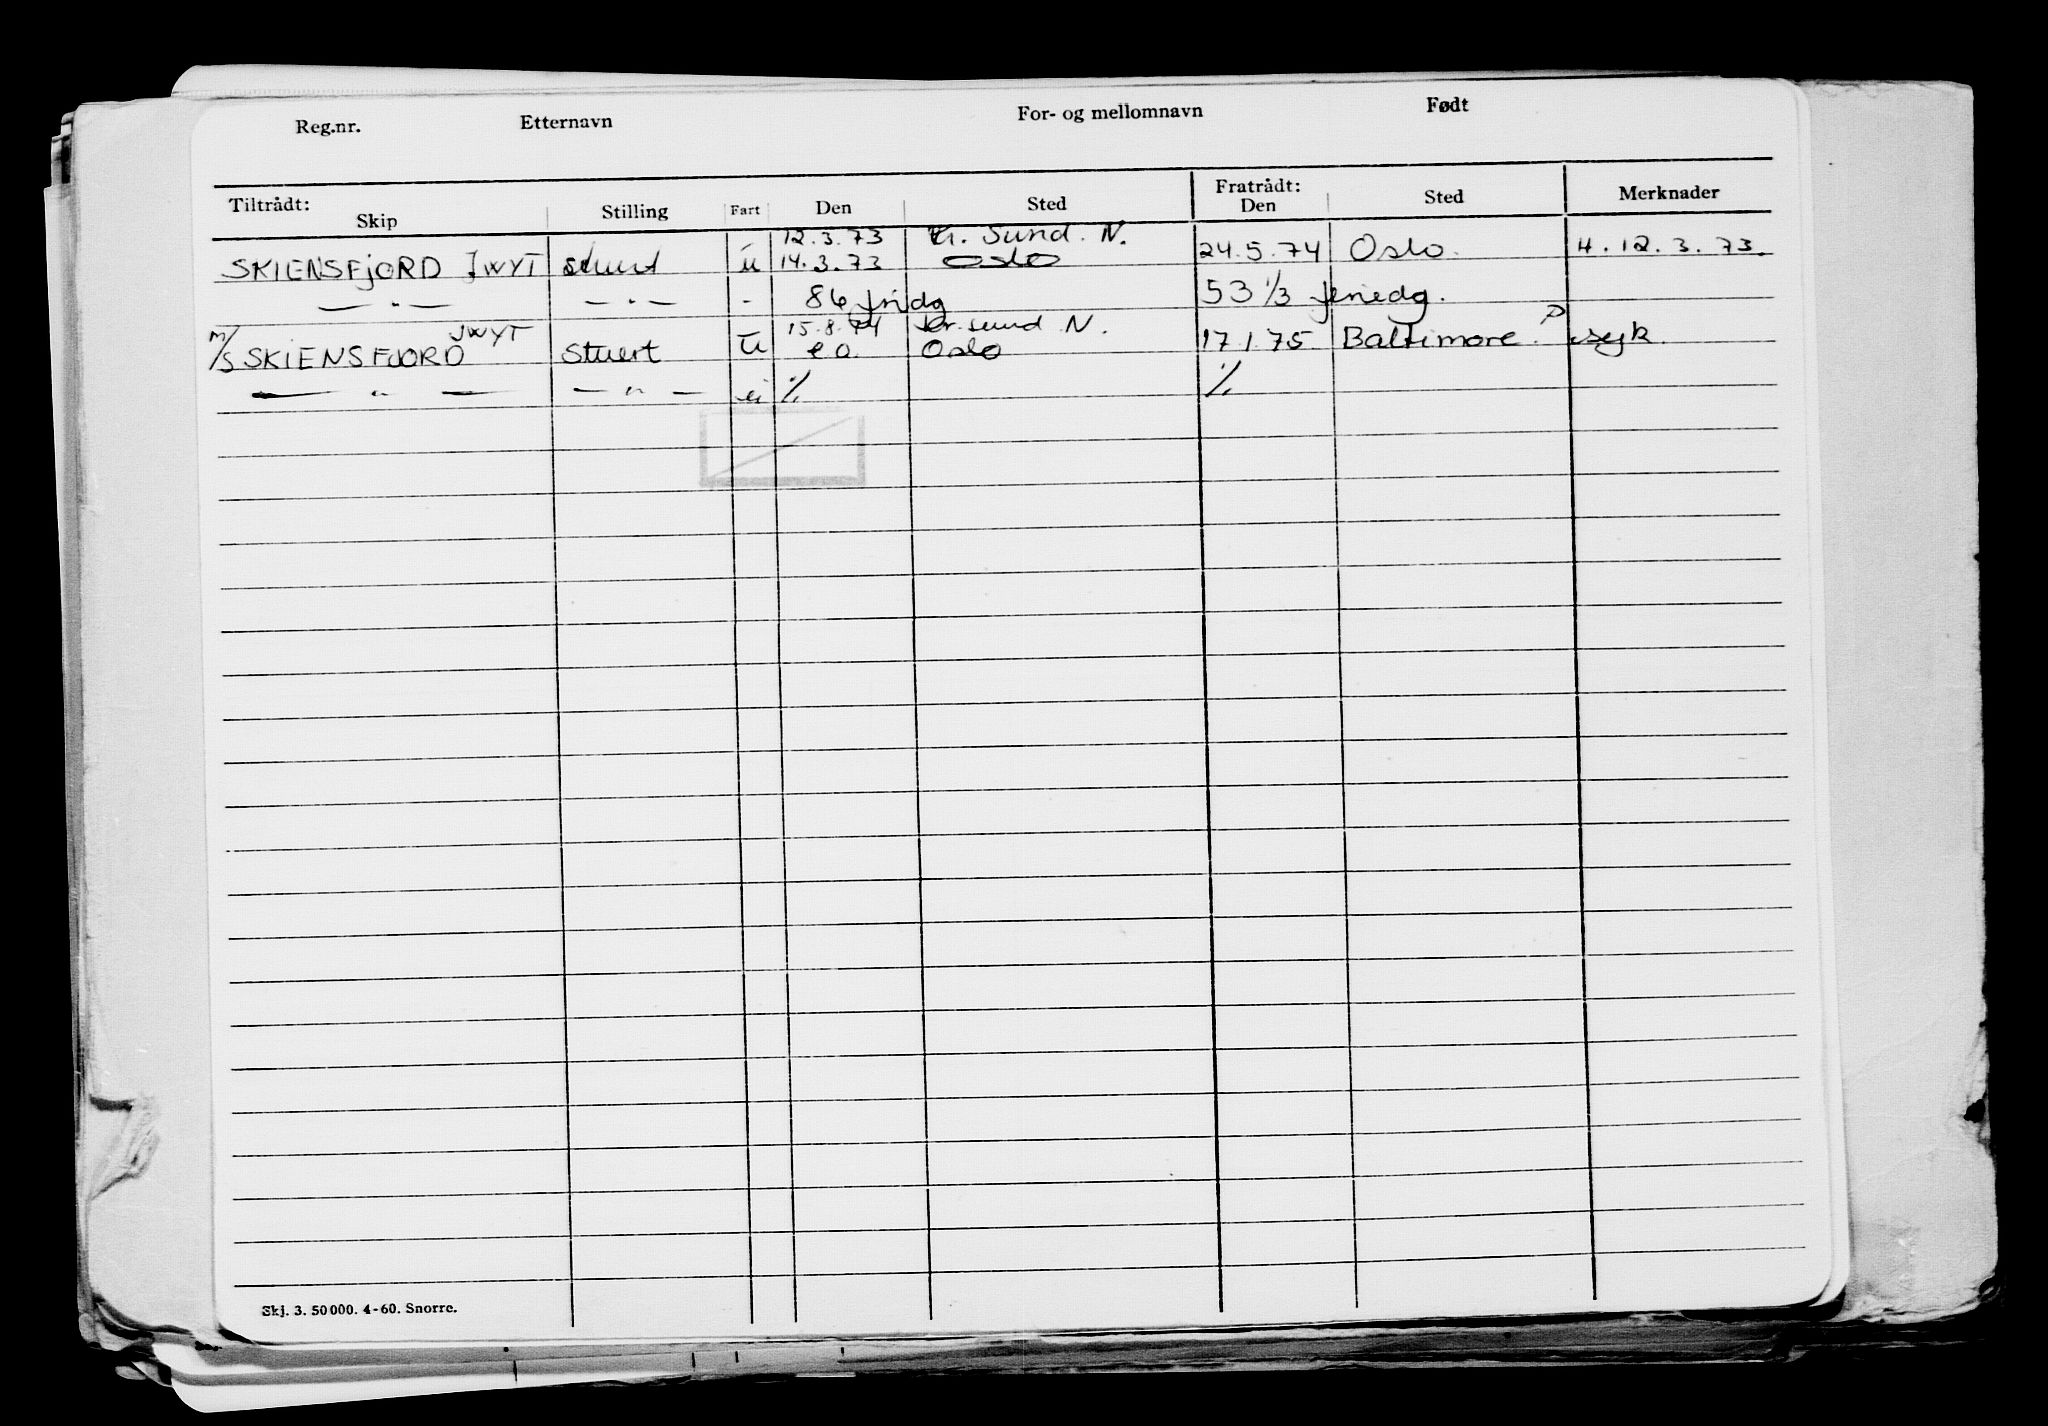 Reg.nr. Etternavn For- og mellomnavn Født
Tiltrådt: Fratrådt:
Skip Stilling Fart Den Sted Den Sted Merknader
12.3.73 Kr. Sund. N.
SKIENSFJORD JWYT stuert u 14.3.73 Oslo 24.5.74 Oslo. 4.12.3.73.
— " — — " — - 86 fridg 53 1/3 feriedg.
JWYT 15.8.74 Kr. sund N.
M/S SKIENSFJORD Stuert U e.o. Oslo 17.1.75 Baltimore. P syk.
— " — — " — ei % %
Skj. 3. 50 000. 4-60. Snorre.